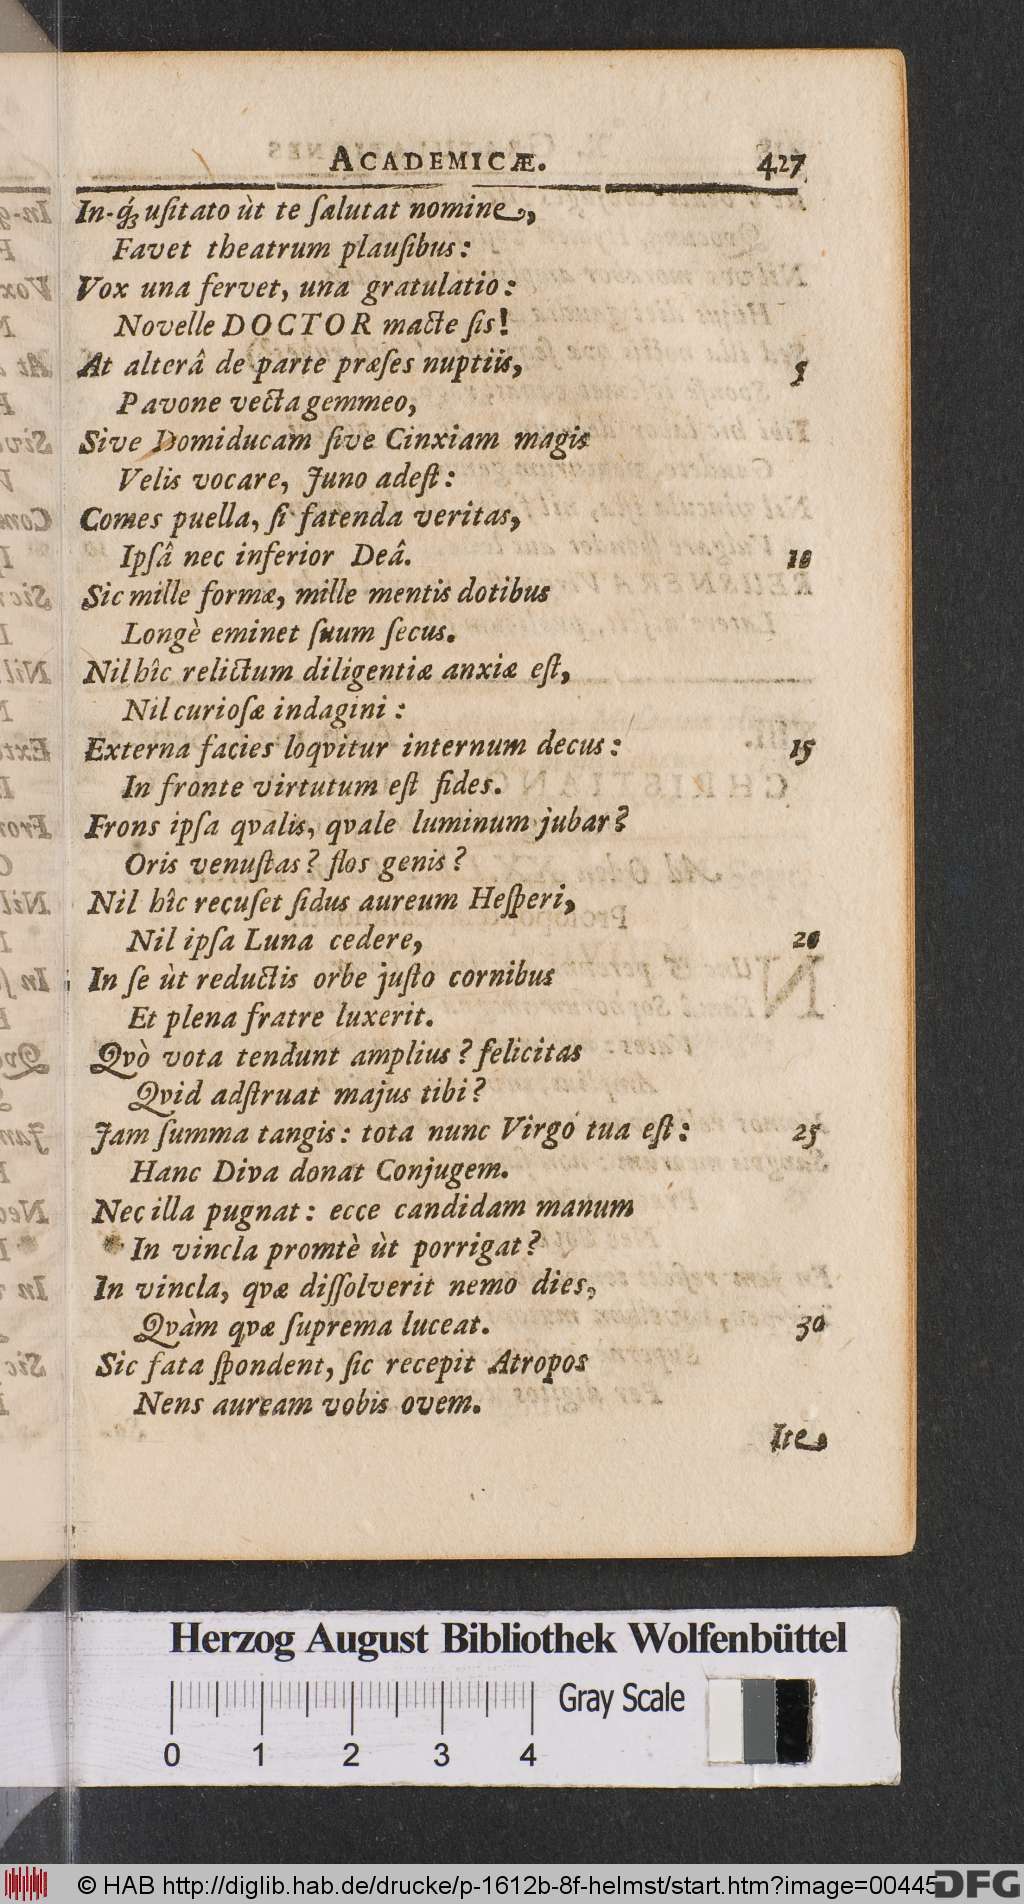 ACADEMICÆ. 427
In-q́ꝫ uſitato ùt te ſalutat nomine,
Favet theatrum plauſibus:
Vox una fervet, una gratulatio:
Novelle DOCTOR macte ſis!
At alterâ de parte præſes nuptiis, 5
Pavone vecta gemmeo,
Sive Domiducam ſive Cinxiam magis
Velis vocare, Juno adeſt:
Comes puella, ſi fatenda veritas,
Ipſâ nec inferior Deâ. 10
Sic mille formæ, mille mentis dotibus
Longè eminet ſuum ſecus.
Nil hîc relictum diligentiæ anxiæ eſt,
Nil curioſæ indagini:
Externa facies loqvitur internum decus: 15
In fronte virtutum eſt fides.
Frons ipſa qvalis, qvale luminum jubar?
Oris venuſtas? flos genis?
Nil hîc recuſet ſidus aureum Heſperi,
Nil ipſa Luna cedere, 20
In ſe ùt reductis orbe juſto cornibus
Et plena fratre luxerit.
Qvò vota tendunt amplius? felicitas
Qvid adſtruat majus tibi?
Jam ſumma tangis: tota nunc Virgo tua eſt: 25
Hanc Diva donat Conjugem.
Nec illa pugnat: ecce candidam manum
In vincla promtè ùt porrigat?
In vincla, qvæ diſſolverit nemo dies,
Qvàm qvæ ſuprema luceat. 30
Sic fata ſpondent, ſic recepit Atropos
Nens auream vobis ovem.
Ite
Herzog August Bibliothek Wolfenbüttel
Gray Scale
0 1 2 3 4
© HAB http://diglib.hab.de/drucke/p-1612b-8f-helmst/start.htm?image=00445
DFG